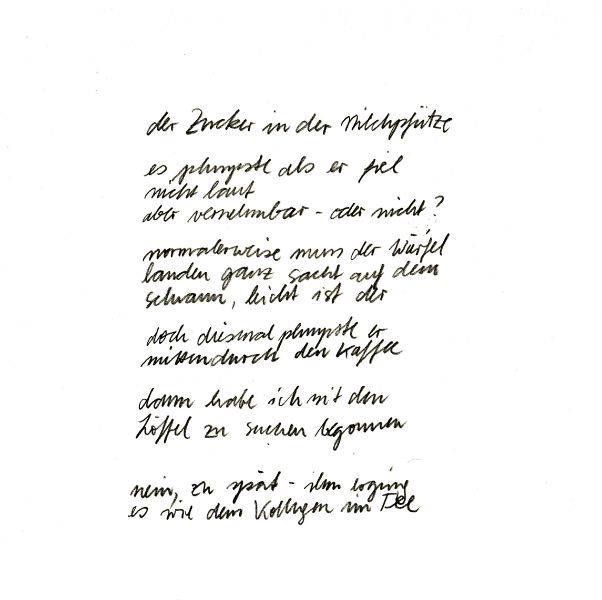 der Zucker in der Milchpfütze
es plumpste als er fiel
nicht laut
aber vernehmbar - oder nicht?
normalerweise muss der Würfel
landen ganz sacht auf dem
Schaum, leicht ist der
doch diesmal plumpste er
mittendurch den Kaffee
dann habe ich mit dem
Löffel zu suchen begonnen
nein, zu spät - ihm erging
es wie dem Kollegen im Tee